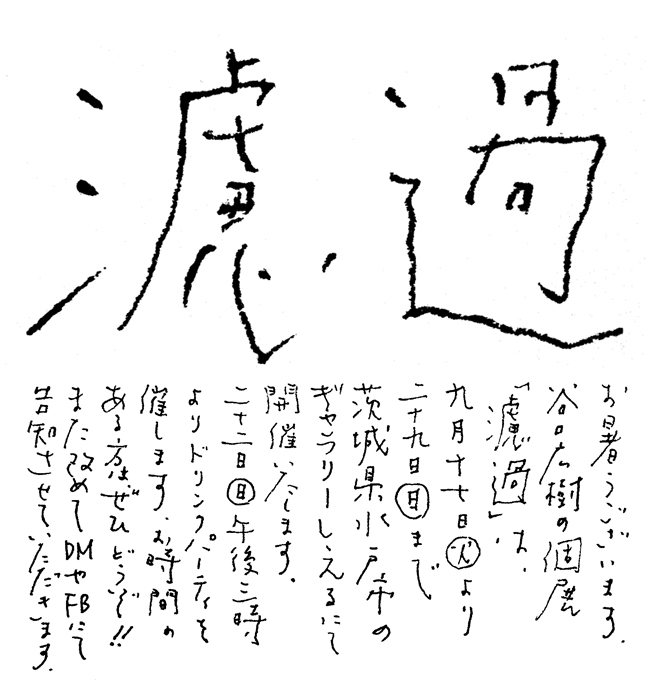 濾過
お暑うございます。
谷口広樹の個展
「濾過」は、
九月十七日火より
二十九日日まで
茨城県水戸市の
ギャラリーしえるにて
開催いたします。
二十二日日午後三時
よりドリンクパーティを
催します。お時間の
ある方はぜひどうぞ!!
また改めてDMやFBにて
告知させていただきます。